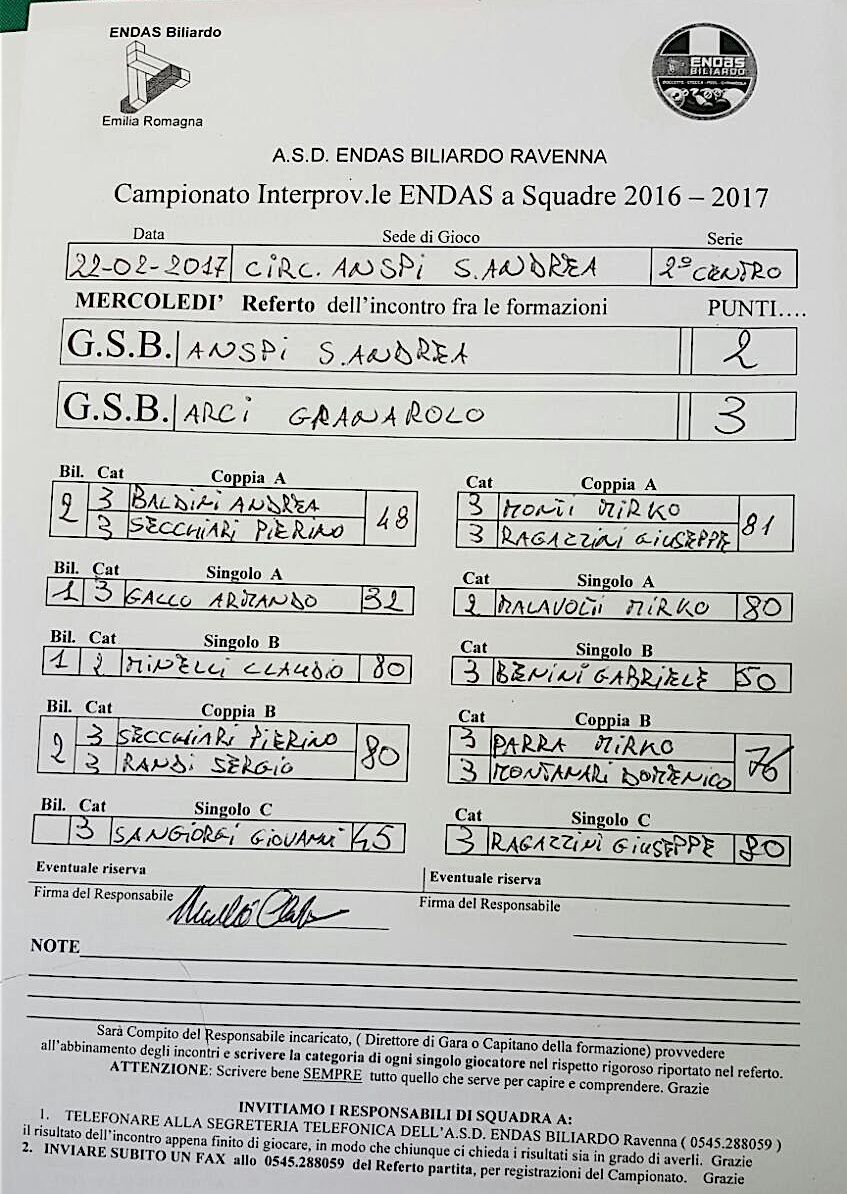 ENDAS Biliardo
Emilia Romagna
ENDAS
BILIARDO
A.S.D. ENDAS BILIARDO RAVENNA
Campionato Interprov.le ENDAS a Squadre 2016 – 2017
Data Sede di Gioco Serie
22-02-2017 CIRC. ANSPI S. ANDREA 2º CENTRO
MERCOLEDI’ Referto dell'incontro fra le formazioni PUNTI….
G.S.B. ANSPI S. ANDREA 2
G.S.B. ARCI GRANAROLO 3
Bil. Cat Coppia A Cat Coppia A
2 3 BALDINI ANDREA 48 3 MONTI MIRKO 81
3 SECCHIARI PIERINO 3 RAGAZZINI GIUSEPPE
Bil. Cat Singolo A Cat Singolo A
1 3 GALLO ARMANDO 32 2 MALAVOLTI MIRKO 80
Bil. Cat Singolo B Cat Singolo B
1 2 MINELLI CLAUDIO 80 3 BENINI GABRIELE 50
Bil. Cat Coppia B Cat Coppia B
2 3 SECCHIARI PIERINO 80 3 PARRA MIRKO 76
3 RANDI SERGIO 3 MONTANARI DOMENICO
Bil. Cat Singolo C Cat Singolo C
3 SANGIORGI GIOVANNI 45 3 RAGAZZINI GIUSEPPE 80
Eventuale riserva Eventuale riserva
Firma del Responsabile Firma del Responsabile
NOTE
Sarà Compito del Responsabile incaricato, ( Direttore di Gara o Capitano della formazione) provvedere
all'abbinamento degli incontri e scrivere la categoria di ogni singolo giocatore nel rispetto rigoroso riportato nel referto.
ATTENZIONE: Scrivere bene SEMPRE tutto quello che serve per capire e comprendere. Grazie
INVITIAMO I RESPONSABILI DI SQUADRA A:
1. TELEFONARE ALLA SEGRETERIA TELEFONICA DELL'A.S.D. ENDAS BILIARDO Ravenna ( 0545.288059 )
il risultato dell'incontro appena finito di giocare, in modo che chiunque ci chieda i risultati sia in grado di averli. Grazie
2. INVIARE SUBITO UN FAX allo 0545.288059 del Referto partita, per registrazioni del Campionato. Grazie